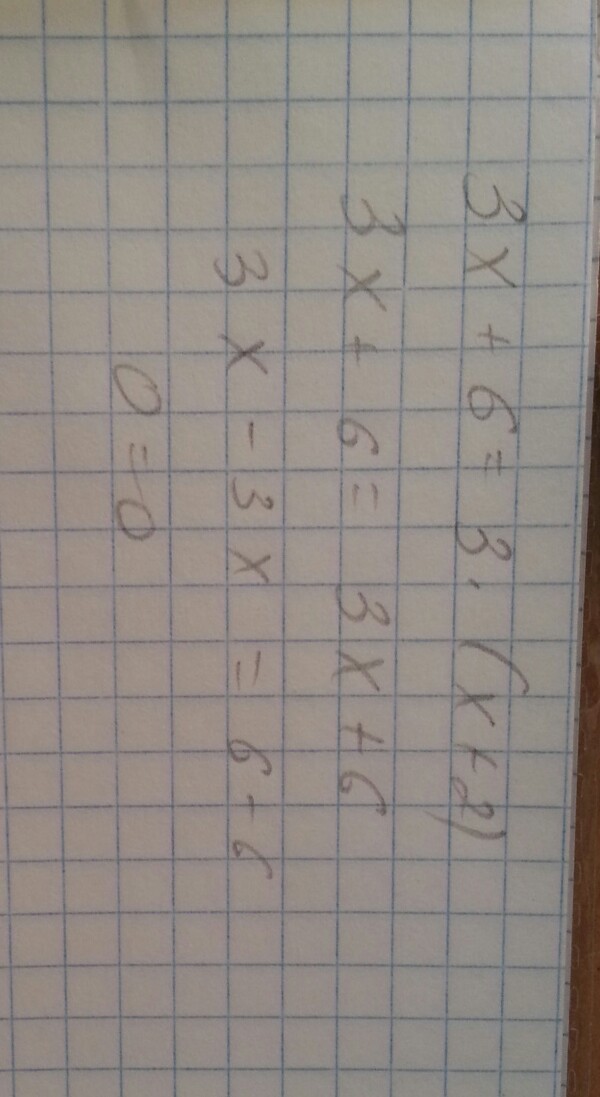 3x + 6 = 3 · (x + 2)
3x + 6 = 3x + 6
3x - 3x = 6 - 6
0 = 0